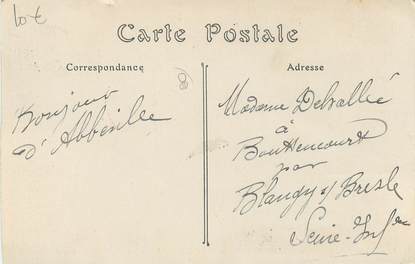 10 €
Carte Postale
Correspondance
Adresse
Bonjour
d'Abbeville
Madame Delvallée
à
Bouttencourt
par
Blangy s/ Bresle
Seine-Infre